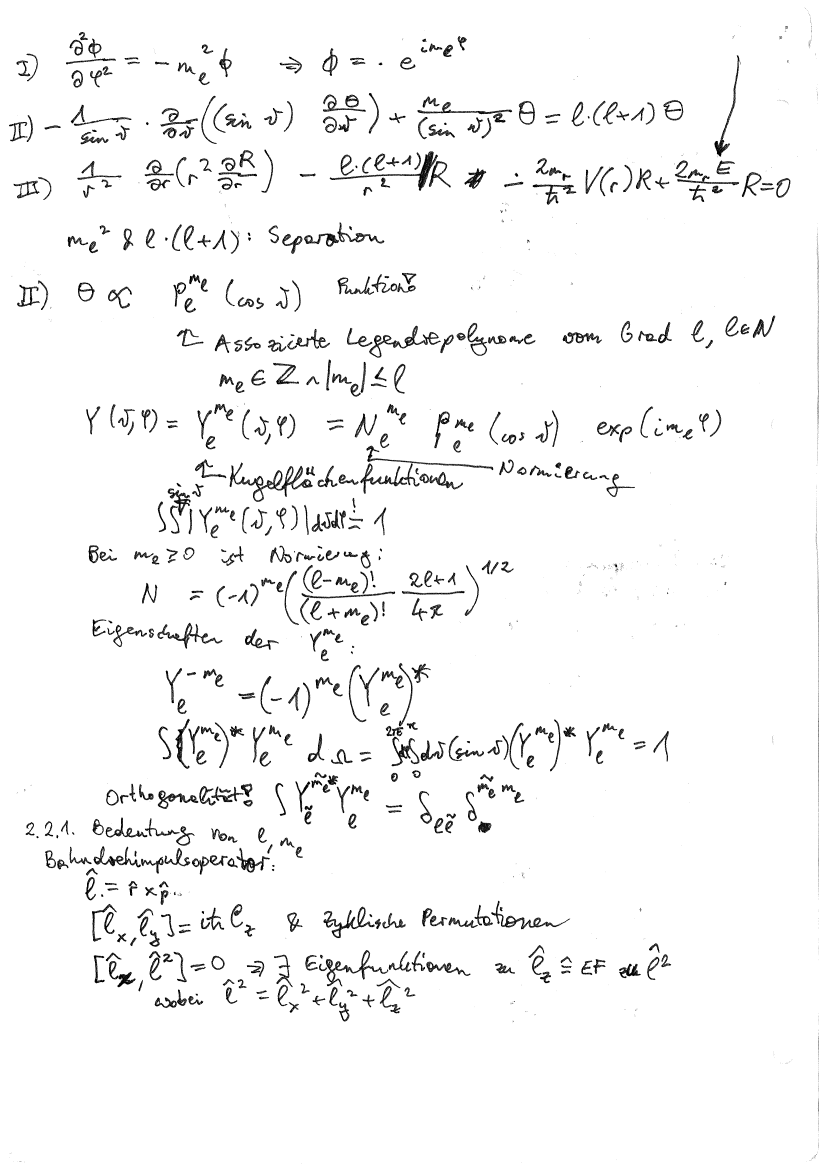 I) ∂²ϕ/∂φ² = - mₑ² ϕ ⇒ ϕ = · e^(i mₑ φ)
II) - 1/sin ϑ · ∂/∂ϑ ((sin ϑ) ∂θ/∂ϑ) + mₑ/(sin ϑ)² θ = l·(l+1) θ
III) 1/r² ∂/∂r (r² ∂R/∂r) - l·(l+1)/r² R ∸ 2mᵣ/ħ² V(r) R + 2mᵣE/ħ² R = 0
mₑ² & l·(l+1): Separation
II) θ ∝ Pₑ^(mₑ) (cos ϑ) Funktion!
↑ Assoziierte Legendrepolynome vom Grad l, l∈N
mₑ ∈ ℤ ∧ |mₑ| ≤ l
Y(ϑ,φ) = Yₑ^(mₑ) (ϑ,φ) = Nₑ^(mₑ) Pₑ^(mₑ) (cos ϑ) exp(i mₑ φ)
↑ Kugelflächenfunktionen ↑ Normierung
sin ϑ
∫∫ |Yₑ^(mₑ) (ϑ,φ)| dϑdφ =! 1
Bei mₑ ≥ 0 ist Normierung:
N = (-1)^(mₑ) ((l-mₑ)!/(l+mₑ)! (2l+1)/4π)^(1/2)
Eigenschaften der Yₑ^(mₑ):
Yₑ^(-mₑ) = (-1)^(mₑ) (Yₑ^(mₑ))*
∫(Yₑ^(mₑ))* Yₑ^(mₑ) dΩ = ∫₀^(2π) ∫₀^π dϑ (sin ϑ) (Yₑ^(mₑ))* Yₑ^(mₑ) = 1
Orthogonalität! ∫ Y_ẽ^(m̃ₑ*) Yₑ^(mₑ) = δ_(eẽ) δ^(m̃ₑ mₑ)
2.2.1. Bedeutung von l, mₑ
Bahndrehimpulsoperator:
l̂ := r̂ × p̂
[l̂ₓ, l̂_y] = iħ l_z & zyklische Permutationen
[l̂_z, l̂²] = 0 ⇒ ∃ Eigenfunktionen zu l̂_z ≙ EF zu l̂²
wobei l̂² = l̂ₓ² + l̂_y² + l̂_z²